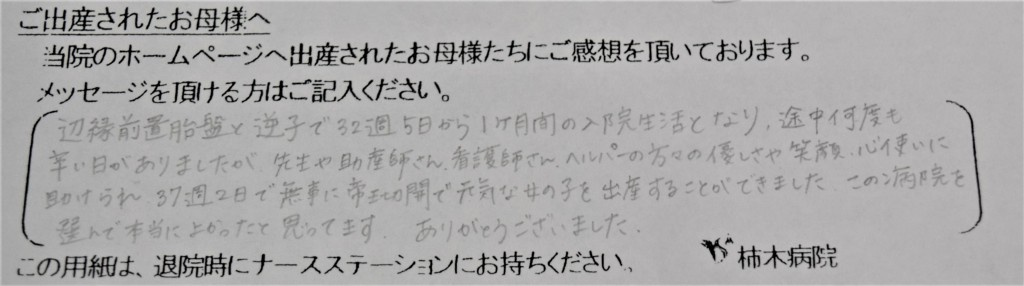 ご出産されたお母様へ
当院のホームページへ出産されたお母様たちにご感想を頂いております。
メッセージを頂ける方はご記入ください。
辺縁前置胎盤と逆子で32週5日から1ケ月間の入院生活となり、途中何度も
辛い日がありましたが、先生や助産師さん、看護師さん、ヘルパーの方々の優しさや笑顔、心使いに
助けられ、37週2日で無事に帝王切開で元気な女の子を出産することができました。この病院を
選んで本当によかったと思ってます。ありがとうございました。
この用紙は、退院時にナースステーションにお持ちください。
柿木病院